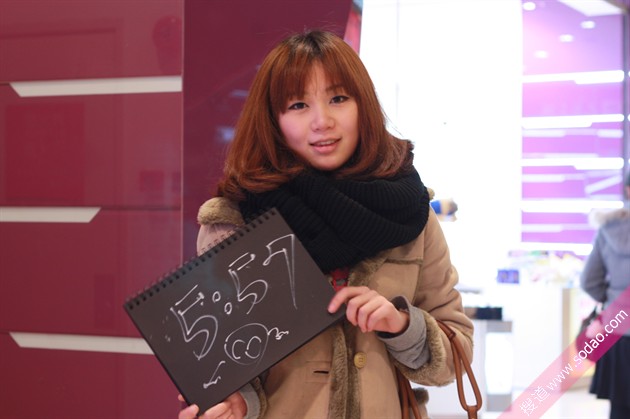 5:57
搜道 www.sodao.com